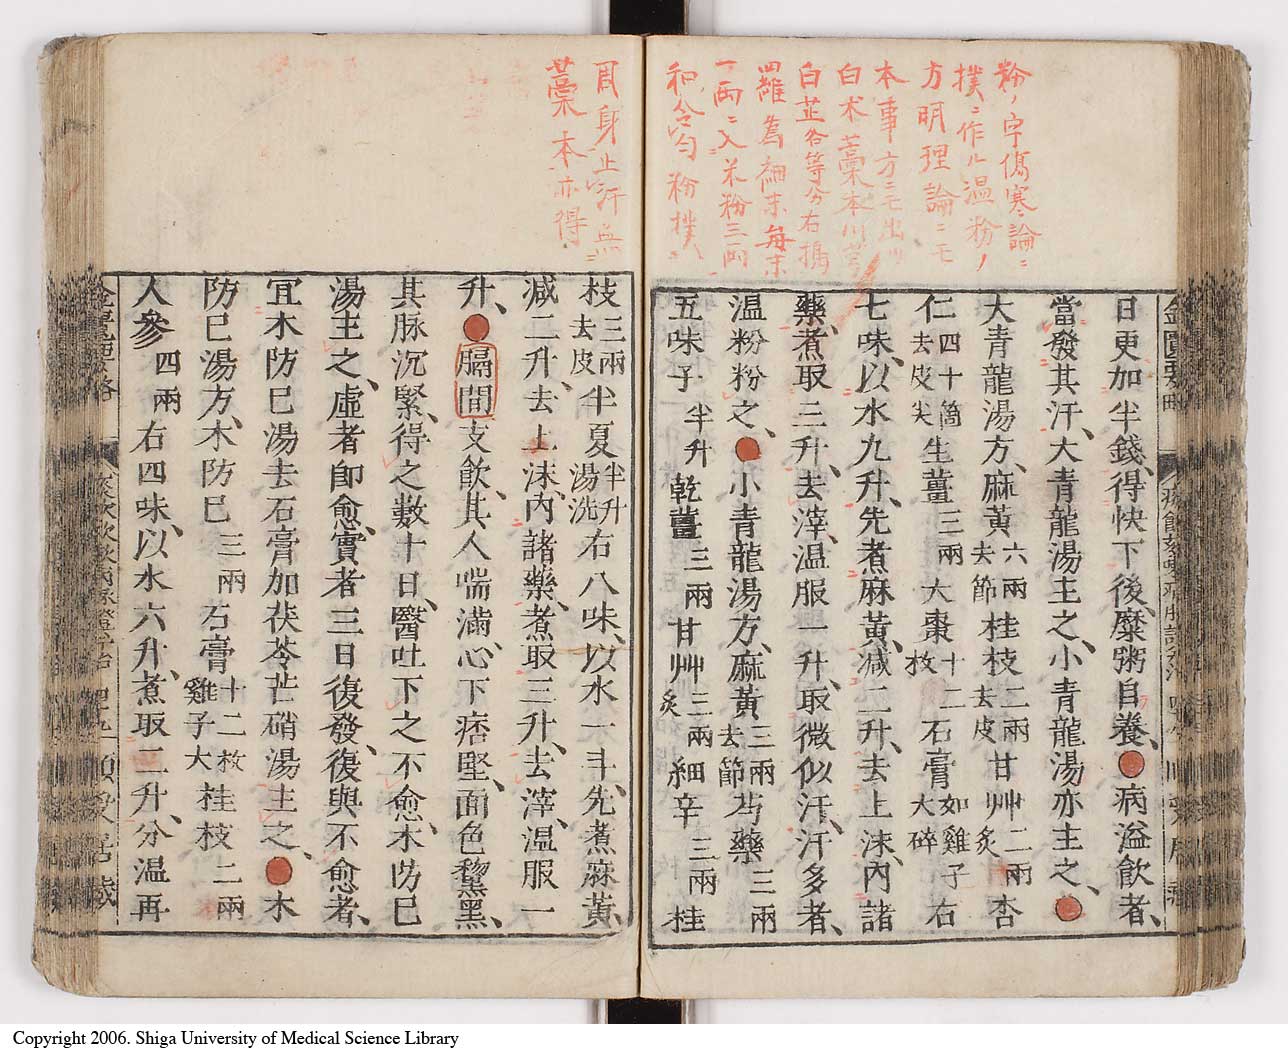 粉ノ字傷寒論ニ
撲ニ作ル温粉ノ
方明理論ニモ
本事方ニモ出
白朮藁本川芎
白芷各等分右搗
羅為細末每末
一兩ニ入米粉三兩
和令勻粉撲
周身止汗無
藁本亦得
日更加半錢得快下後糜粥自養●病溢飲者、
當發其汗、大青龍湯主之、小青龍湯亦主之、●
大青龍湯方、麻黃六兩去節桂枝二兩去皮甘艸二兩炙杏
仁四十箇去皮尖生薑三兩大棗十二枚石膏如雞子大碎右
七味、以水九升、先煮麻黃、減二升、去上沫、內諸
藥、煮取三升、去滓、溫服一升、取微似汗、汗多者、
溫粉粉之、●小青龍湯方、麻黃三兩去節芍藥三兩
五味子半升乾薑三兩甘艸三兩炙細辛三兩桂
枝三兩去皮半夏半升湯洗右八味、以水一斗、先煮麻黃、
減二升、去上沫、內諸藥、煮取三升、去滓、溫服一
升、●膈間支飲、其人喘滿、心下痞堅、面色黧黑、
其脉沉緊、得之數十日、醫吐下之不愈、木防已
湯主之、虛者即愈、實者三日復發、復與不愈者、
宜木防已湯去石膏加茯苓芒硝湯主之、●木
防已湯方、木防已三兩石膏十二枚雞子大桂枝二兩
人參四兩右四味、以水六升、煮取二升、分溫再
Copyright 2006. Shiga University of Medical Science Library